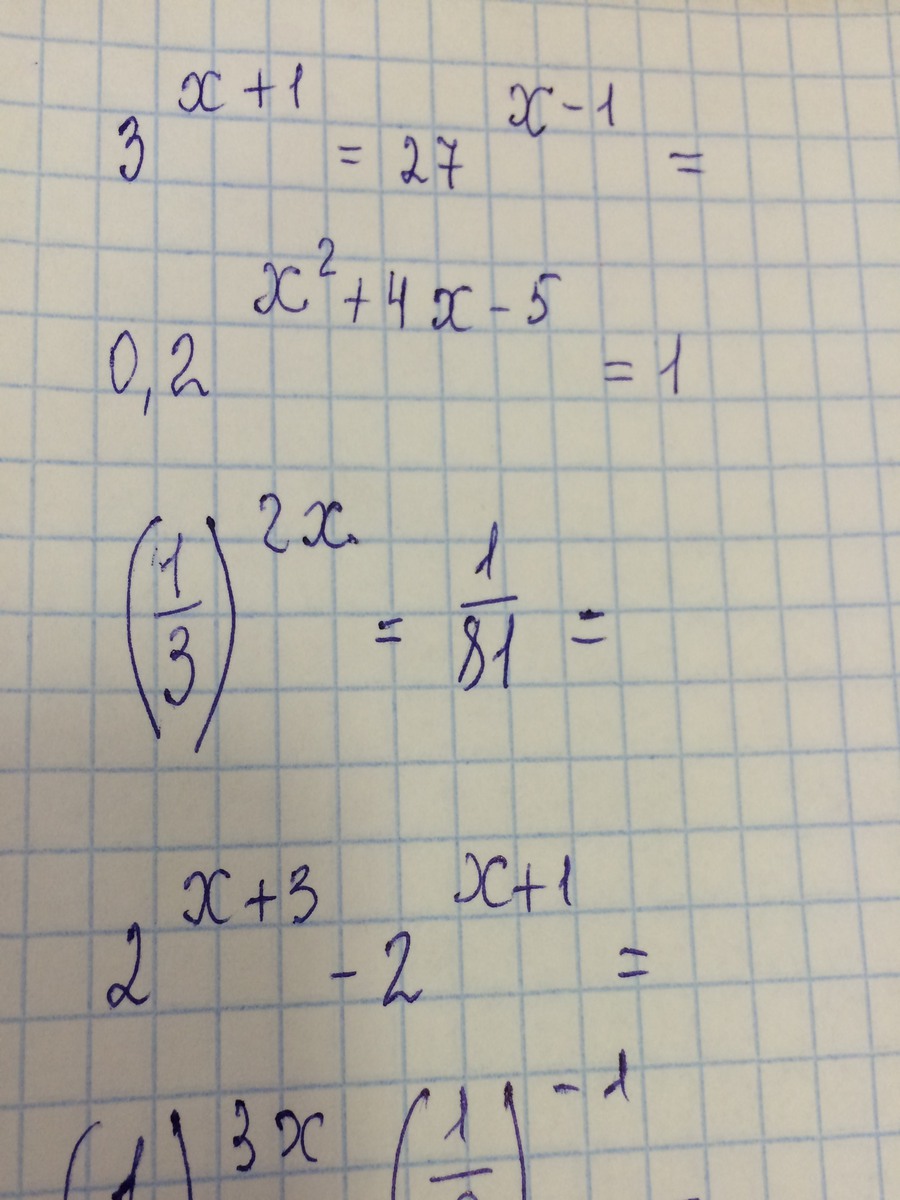 3^(x+1) = 27^(x-1) =
0,2^(x²+4x-5) = 1
(1/3)^(2x) = 1/81 =
2^(x+3) - 2^(x+1) =
3x (1/ )^(-1)